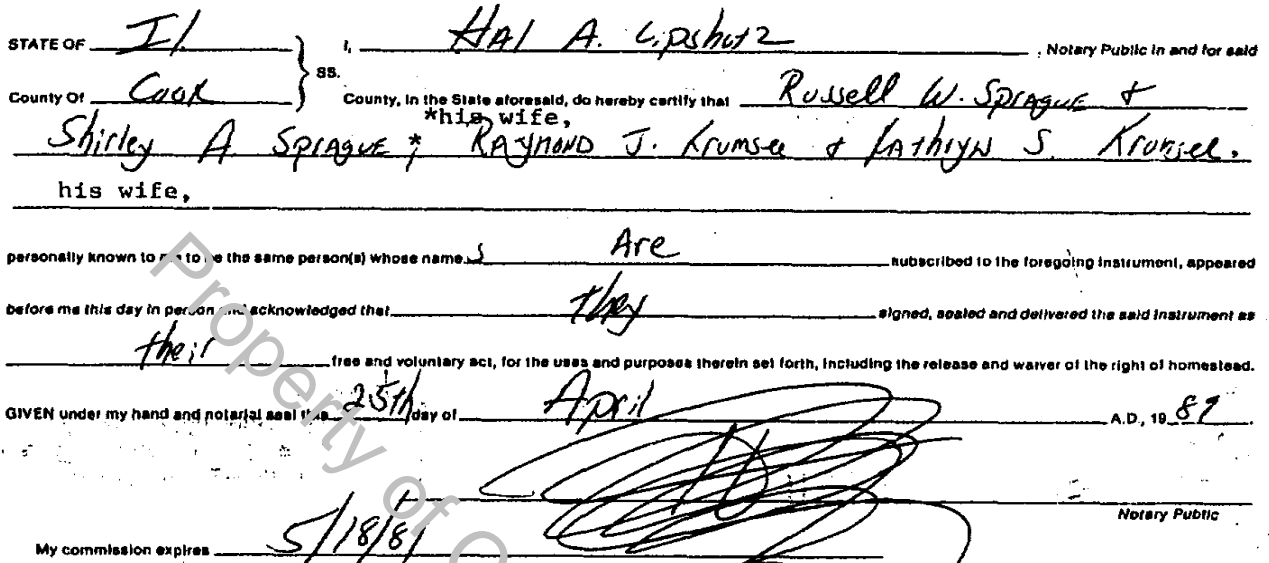 STATE OF Il. I, HAl A. Lipshutz, Notary Public in and for said
County Of Cook } SS. County, in the State aforesaid, do hereby certify that Russell W. Sprague &
*his wife,
Shirley A Sprague *; RAYMOND J. Krumsee & KAthryn S. Krumsee.
his wife,
personally known to me to be the same person(s) whose name s Are subscribed to the foregoing instrument, appeared
before me this day in person and acknowledged that they signed, sealed and delivered the said instrument as
their free and voluntary act, for the uses and purposes therein set forth, including the release and waiver of the right of homestead.
GIVEN under my hand and notarial seal this 25th day of April A.D., 19 89.
Notary Public
My commission expires 5/18/81
Property of